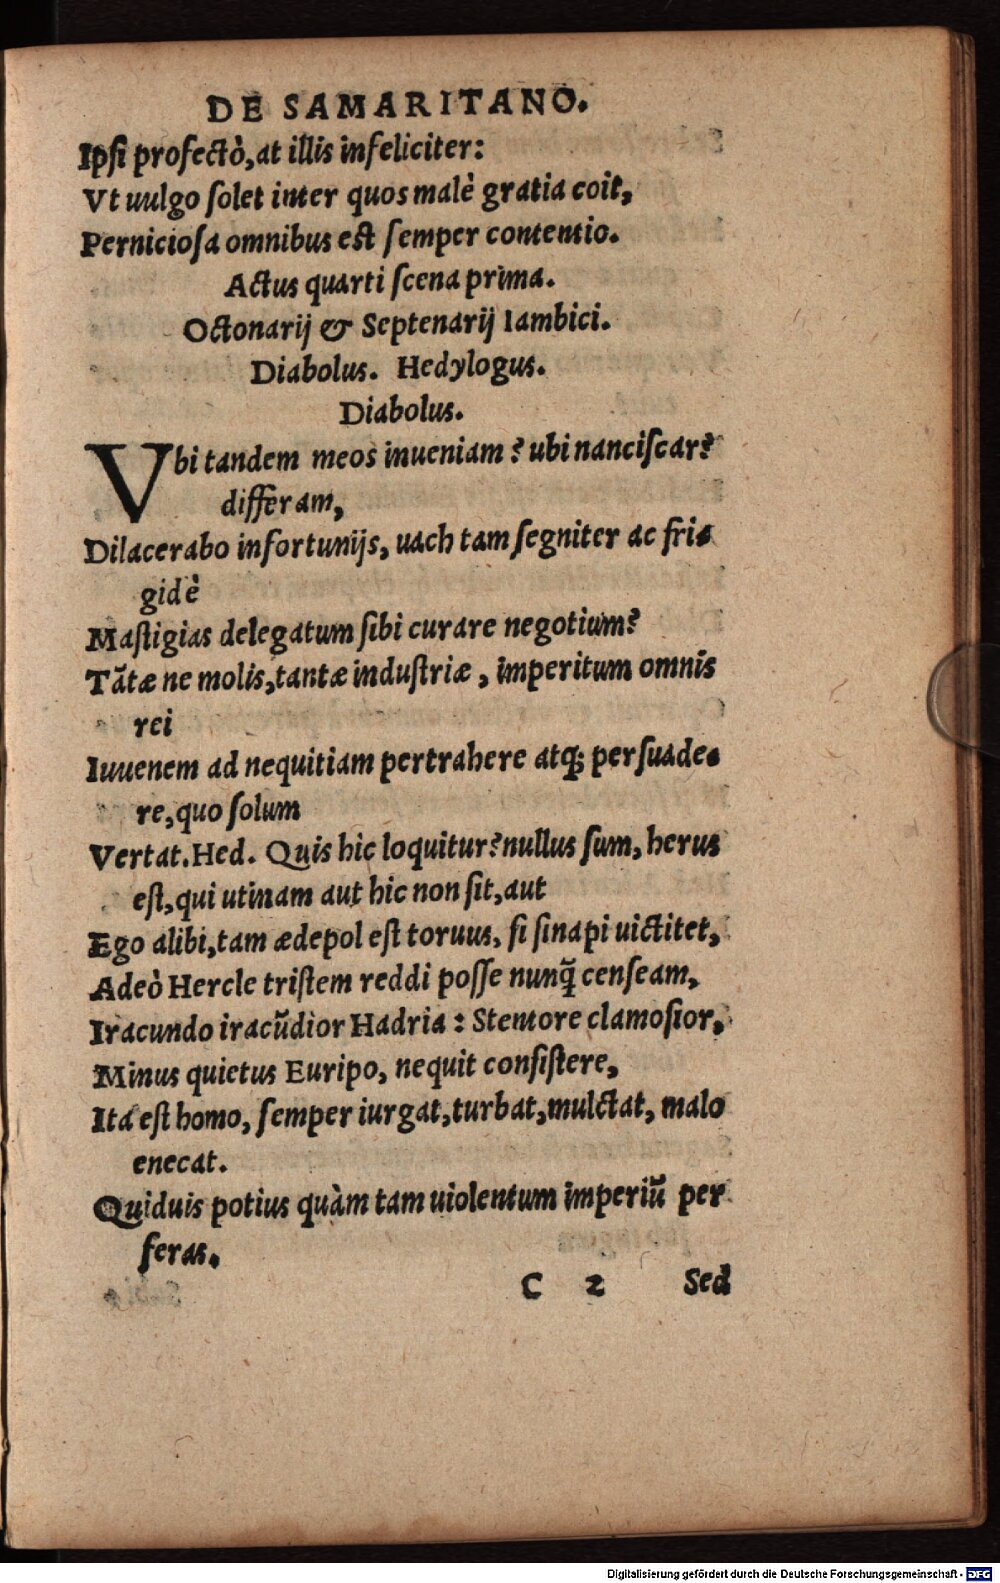 DE SAMARITANO.
Ipſi profectò, at illis infeliciter:
Vt uulgo ſolet inter quos malè gratia coit,
Pernicioſa omnibus eſt ſemper contentio.
Actus quarti ſcena prima.
Octonarij & Septenarij Iambici.
Diabolus. Hedylogus.
Diabolus.
Vbi tandem meos inueniam? ubi nanciſcar?
differam,
Dilacerabo infortunijs, uach tam ſegniter ac fri-
gidè
Maſtigias delegatum ſibi curare negotium?
Tãtæ ne molis, tantæ induſtriæ, imperitum omnis
rei
Iuuenem ad nequitiam pertrahere atq; perſuade-
re, quo ſolum
Vertat. Hed. Quis hic loquitur? nullus ſum, herus
eſt, qui utinam aut hic non ſit, aut
Ego alibi, tam ædepol eſt toruus, ſi ſinapi uictitet,
Adeò Hercle triſtem reddi poſſe nunq̃ cenſeam,
Iracundo iracũdior Hadria: Stentore clamoſior,
Minus quietus Euripo, nequit conſiſtere,
Ita eſt homo, ſemper iurgat, turbat, mulctat, malo
enecat.
Quiduis potius quàm tam uiolentum imperiũ per
feras.
C 2 Sed
Digitalisierung gefördert durch die Deutsche Forschungsgemeinschaft - DFG